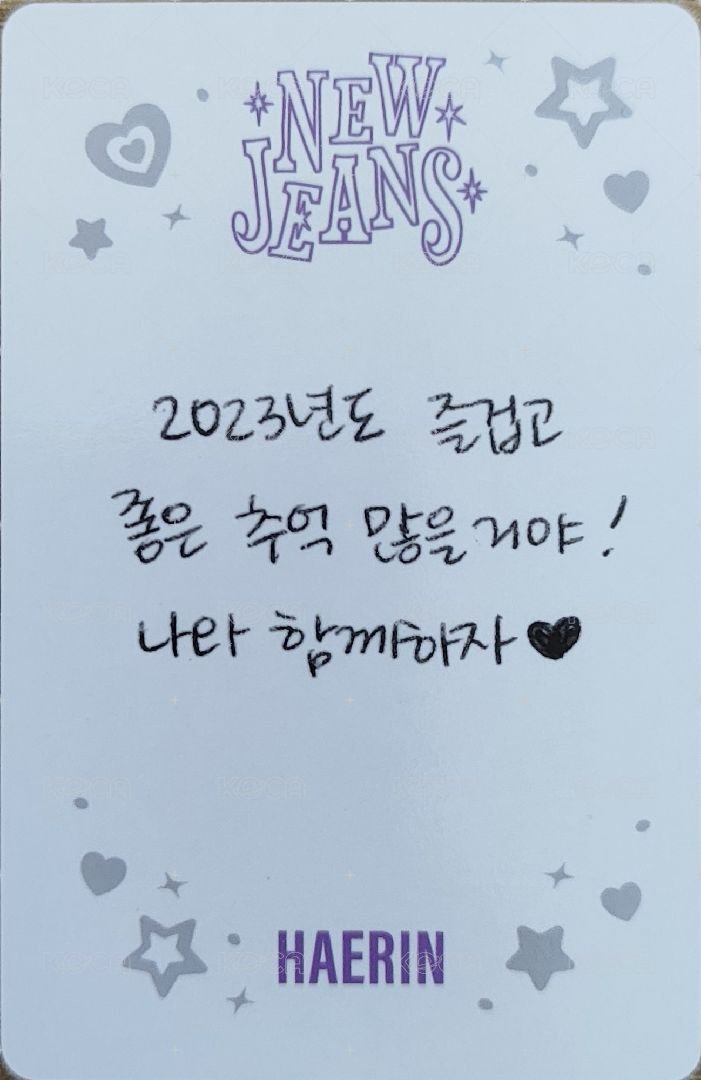 NEW
JEANS
2023년도 즐겁고
좋은 추억 많을거야!
나랑 함께하자♥
HAERIN
KOCA